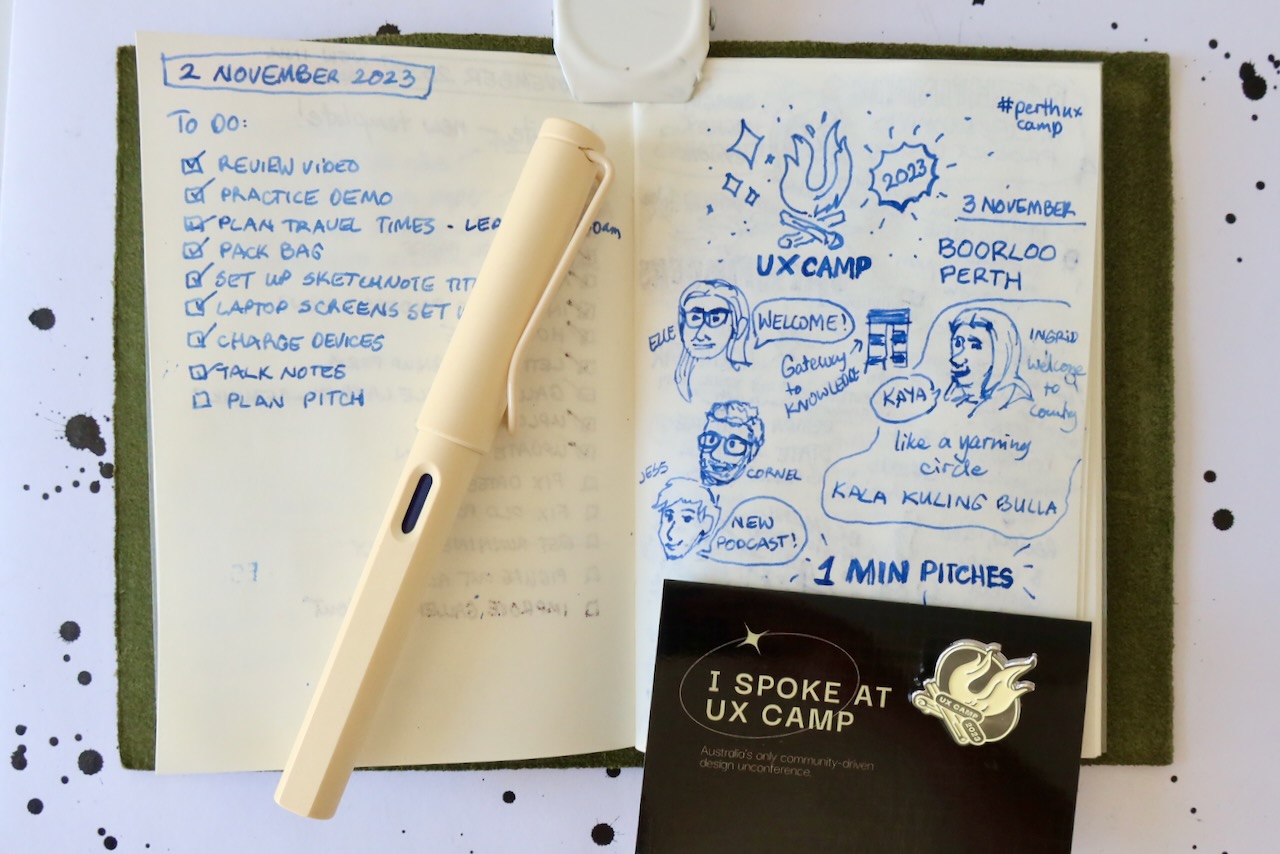 2 NOVEMBER 2023
TO DO:
REVIEW VIDEO
PRACTICE DEMO
PLAN TRAVEL TIMES -
PACK BAG
SET UP SKETCHNOTE
LAPTOP SCREENS SET
CHARGE DEVICES
TALK NOTES
PLAN PITCH
#perthux
camp
2023
3 NOVEMBER
UX CAMP
BOORLOO
PERTH
ELLE
WELCOME!
Gateway
to
KNOWLEDGE
INGRID
Welcome
to
Country
KAYA
like a yarning
circle
KALA KULING BULLA
JESS
CORNEL
NEW
PODCAST!
1 MIN PITCHES
I SPOKE AT
UX CAMP
Australia's only community-driven
design unconference.
UX CAMP
2023